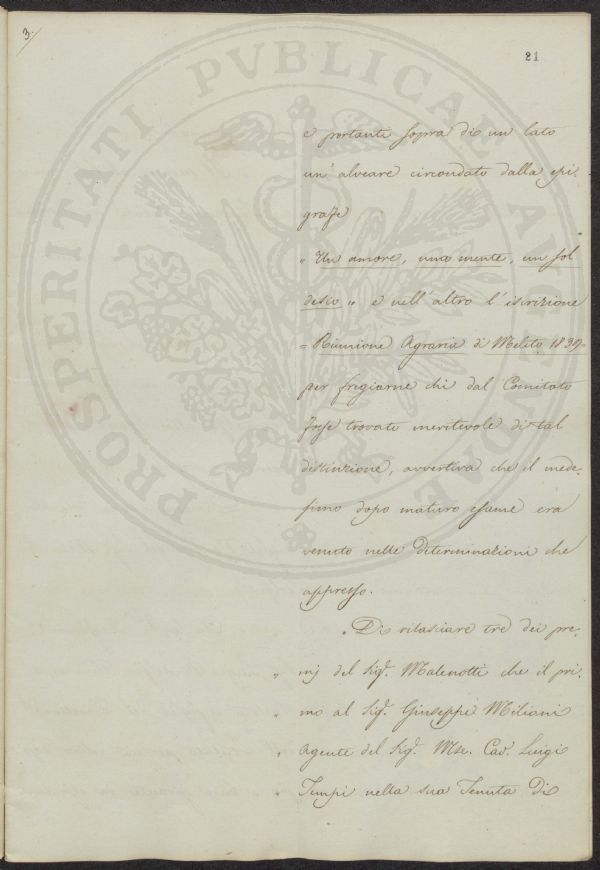 3.
21
PROSPERITATI PVBLICAE AVGENDAE
e portanti sopra di un lato
un' alveare circondato dalla epi-
grafe
" Un amore, una mente, un sol
desio " e nell' altro l' iscrizione
= Riunione Agraria di Meleto 1839 =
per fregiarne chi dal Comitato
fosse trovato meritevole di tal
distinzione, avvertiva che il mede-
simo dopo maturo esame era
venuto nelle determinazioni che
appresso.
" Di rilasciare tre dei pre-
" mj del Sig.r Malenotti che il pri-
" mo al Sig.r Giuseppe Miliani
" Agente del Sig.r Mse. Cav.r Luigi
" Tempi nella sua Tenuta di